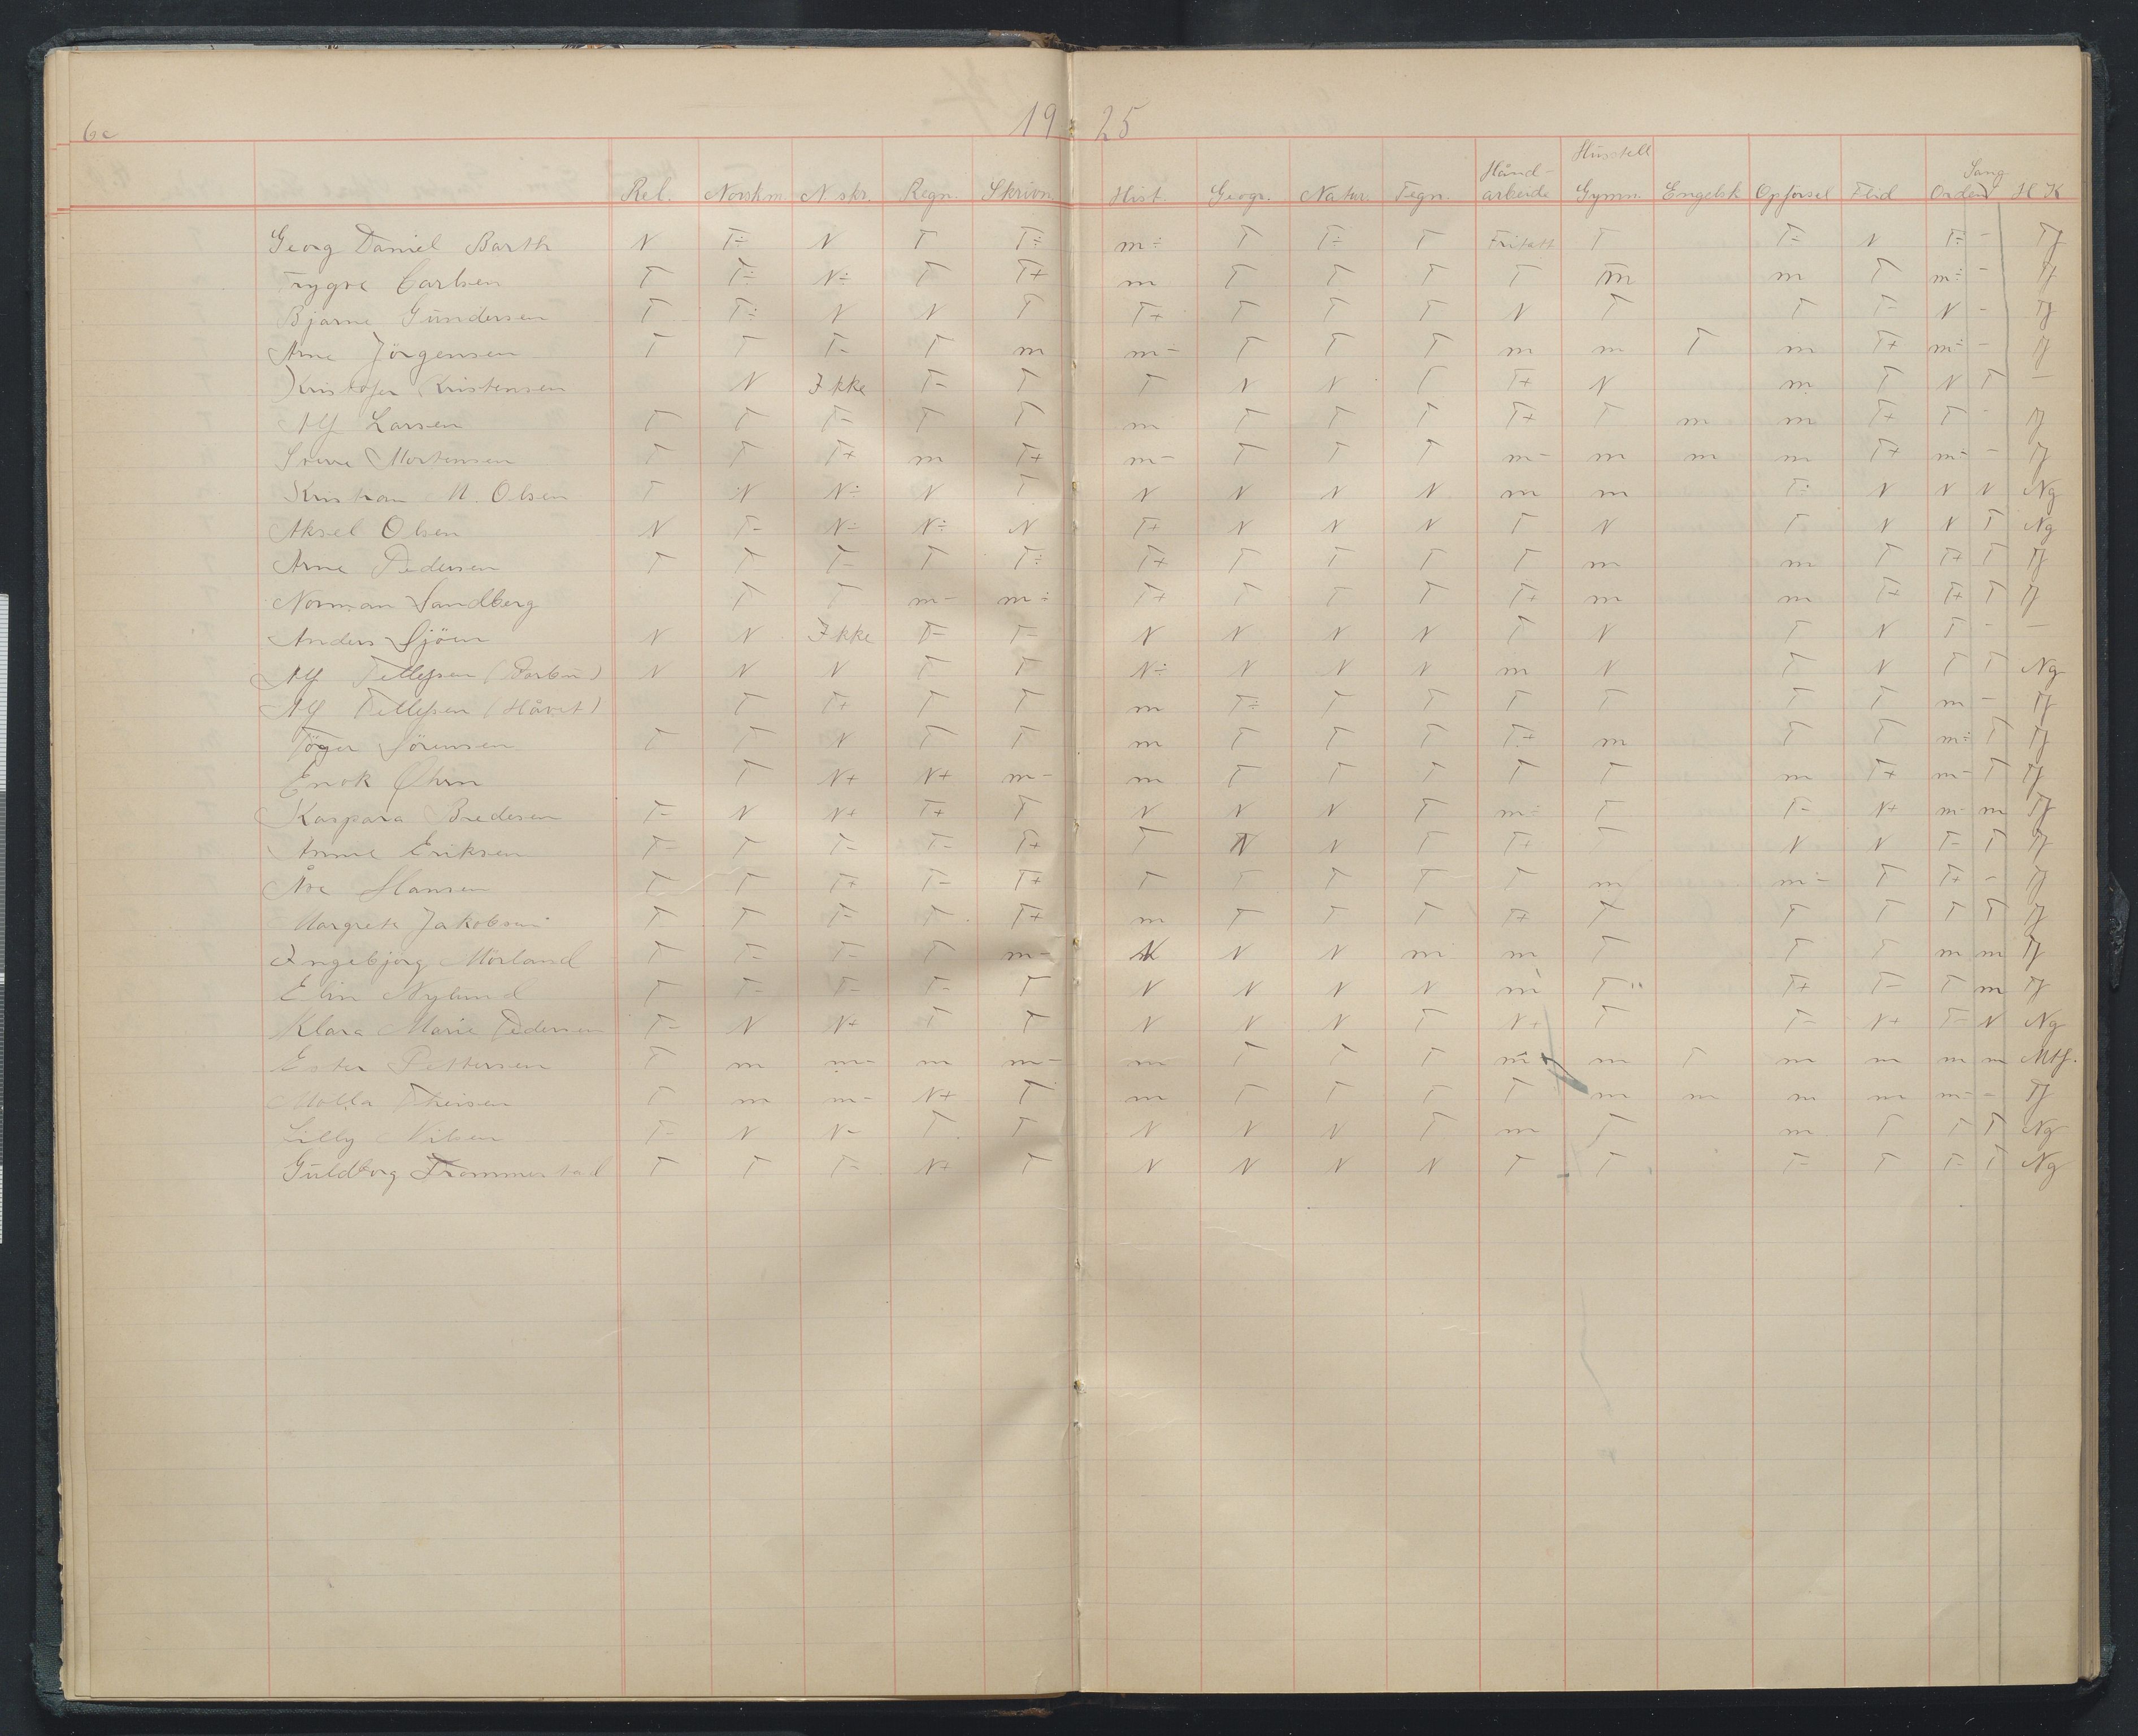 6c 19 25
Husstell
Hånd- Sang
Rel. Norskm. N. skr. Regn. Skrivn. Hist. Geogr. Natur. Tegn. arbeide Gymn. Engelsk Opförsel Flid Orden H K
Georg Daniel Barth N T÷ N T T÷ m÷ T T÷ T Fritatt T T÷ N T÷ - Tf
Trygve Carlsen T T÷ N÷ T T+ m T T T T m m T m÷ - Tf
Bjarne Gundersen T T÷ N N T T+ T T T N T T T- N - Tf
Arne Jörgensen T T T- T m m- T T T m m T m T+ m÷ - Tf
Kristofer Kristensen N Ikke T- T T N N T T+ N m T N T -
Alf Larsen T T T- T T m T T T T+ T m m T+ T - Tf
Sverre Mortensen T T T+ m T+ m- T T T m- m m m T+ m- - Tf
Kristian M. Olsen T N N÷ N T N N N N m m T÷ N N N Ng
Aksel Olsen N T- N÷ N÷ N T+ N N N T N T N N T Ng
Arne Pedersen T T T- T T÷ T+ T T T T m m T T+ T Tf
Norman Sandberg T T m- m÷ T+ T T T T+ m m T+ T+ T Tf
Anders Sjöen N N Ikke T- T- N N N N T N T N T - -
Alf Tellefsen (Barbu) N N N T T N÷ N N N m N T N T T Ng
Alf Tellefsen (Håvet) T T+ T T m T÷ T T T T T T m - Tf
Töger Sörensen T T N T T m T T T T+ m T T m÷ T Tf
Enok Öhrn T N+ N+ m- m T T T T T m T+ m- T Tf
Kaspara Bredesen T- N N+ T+ T N N N T m- T T- N+ m- m Tf
Annie Eriksen T- T T- T- T+ T N N T T+ T N N T- T Tf
Åse Hansen T T T+ T- T+ T T T T T m m- T T+ - Tf
Margrete Jakobsen T T T- T T+ m T T T T+ T T T T T Tf
Ingebjörg Mörland T T- T- T m- N N N m m T T T m m Tf
Elin Nylund T T- T- T- T N N N N m T T+ T- T m Tf
Klara Marie Pedersen T- N N+ T T N N N T N+ T T- N+ T- N Ng
Ester Pettersen T m m- m m- m T T T m m T m m m m Mtf.
Molla Theisen T m m- N+ T m T T T T m m m m m- - Tf
Lilly Nilsen T- N N- T T N N N T m T m T T T Ng
Guldborg Trommestad T T T- N+ T N N N N T T T- T T- T Ng